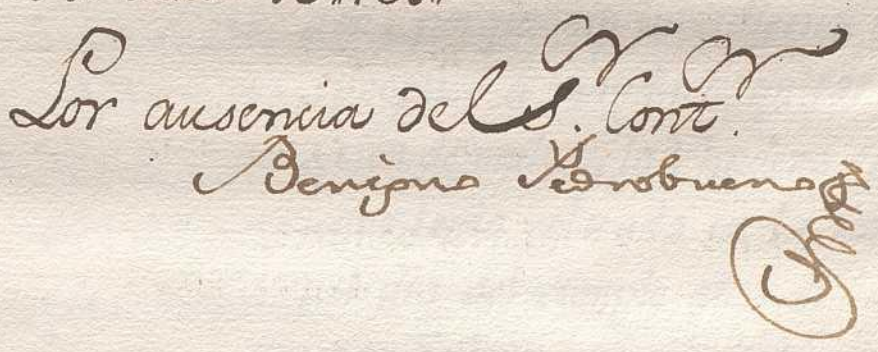 Por ausencia del S.ʳ Cont.ʳ
Benigno Pedrobueno